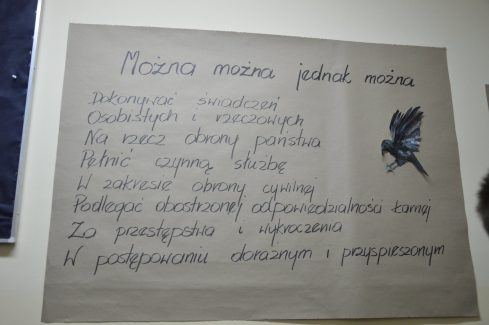 Można można jednak można
Dokonywać świadczeń
Osobistych i rzeczowych
Na rzecz obrony państwa
Pełnić czynną służbę
W zakresie obrony cywilnej
Podlegać obostrzonej odpowiedzialności karnej
Za przestępstwa i wykroczenia
W postępowaniu doraźnym i przyspieszonym